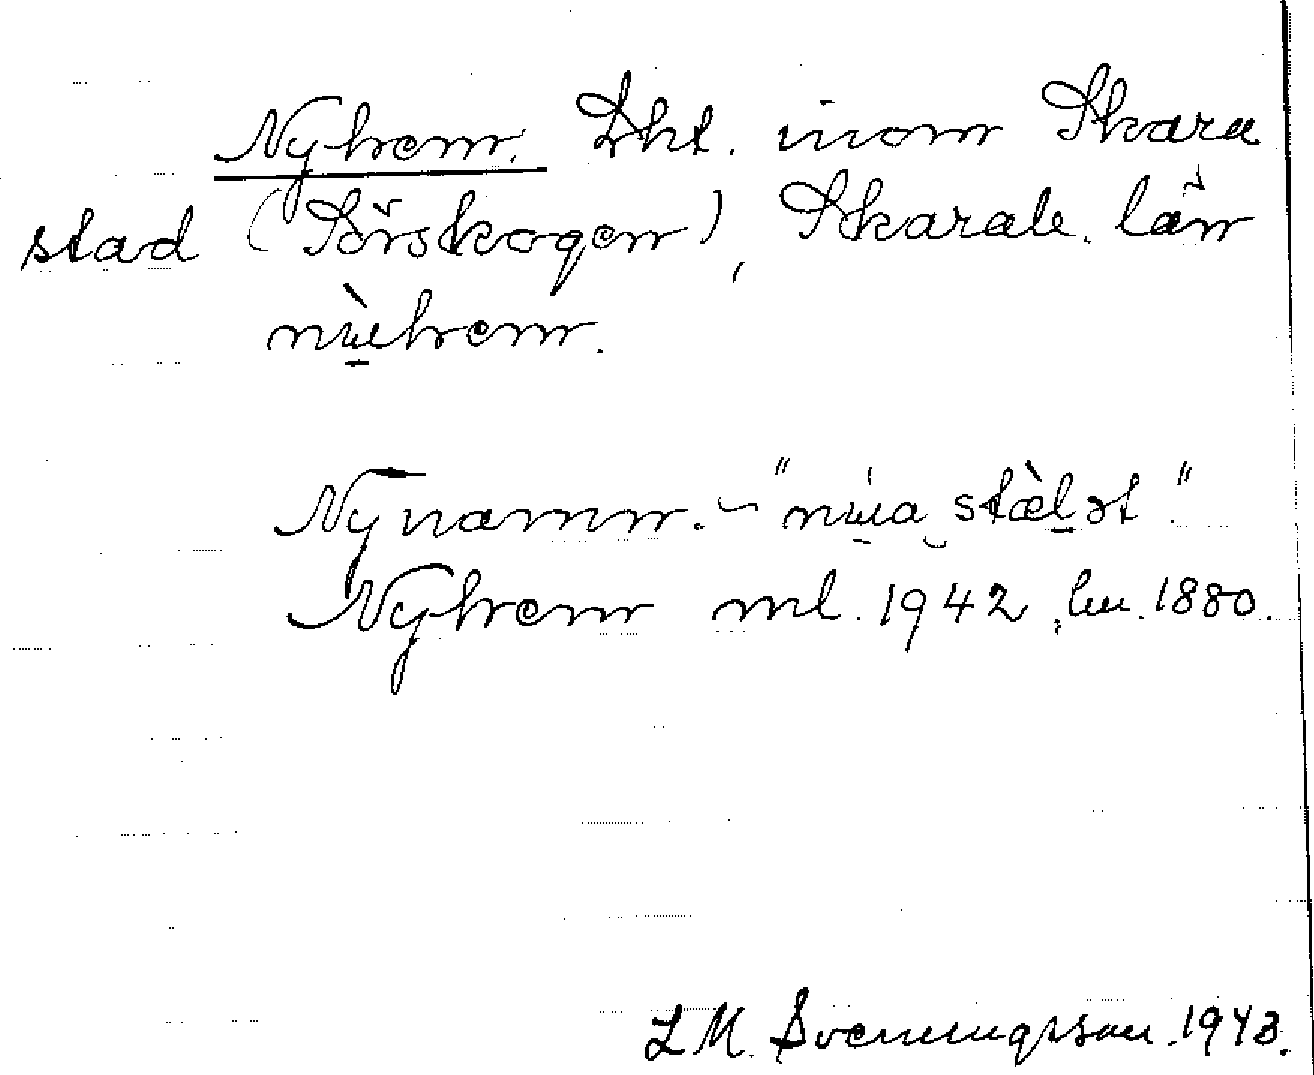 Nyhem. Lht. inom Skara
stad (Sörskogen), Skarab. län
nɯ̀ehem.
Nynamn. ~ "nɯa stæ̀lət"
Nyhem ml. 1942, hu. 1880.
L M. Svenningsson. 1943.